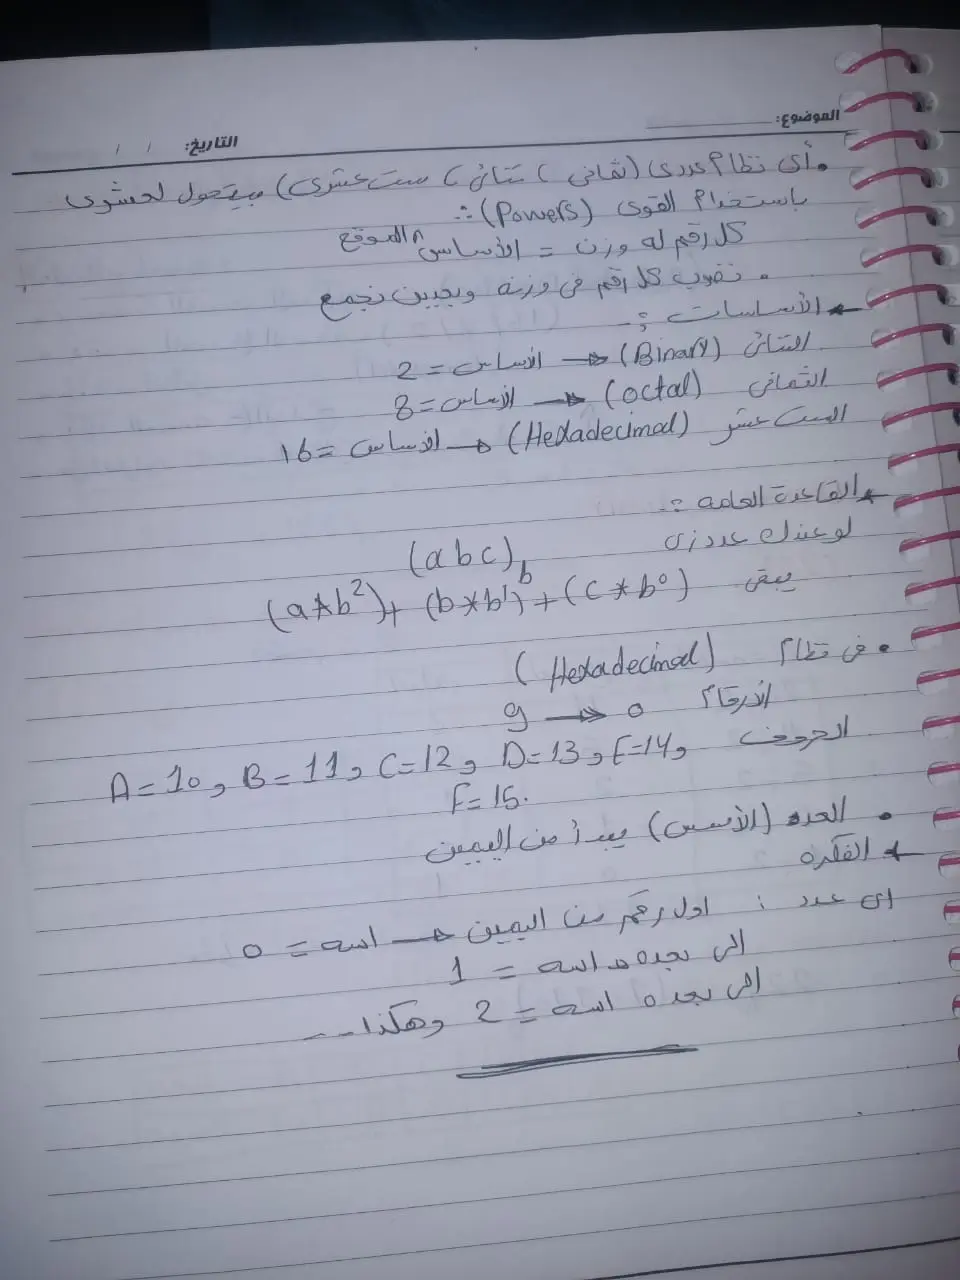 الموضوع:
التاريخ: / /
• أى نظام عددى (ثمانى ، ثنائى ، ست عشرى) بيتحول لعشرى
باستخدام القوى (Powers) :-
كل رقم له وزن = الأساس ^ الموقع
• نضرب كل رقم فى وزنه وبعدين نجمع
الأساسات :-
الثنائى (Binary) → الأساس = 2
الثمانى (octal) → الأساس = 8
الست عشر (Hexadecimal) → الأساس = 16
القاعدة العامه :-
لو عندك عدد زى
(abc)b
يبقى (a*b²)+ (b*b¹)+(c*b⁰)
• فى نظام (Hexadecimal)
الأرقام 0 → 9
الحروف A=10, B=11, C=12, D=13, E=14,
F=15.
• العد (الأسس) يبدأ من اليمين
الفكره
اى عدد : اول رقم من اليمين → اسه = 0
الى بعده اسه = 1
الى بعده اسه = 2 وهكذا...